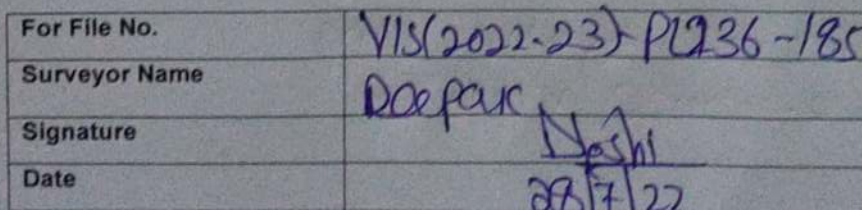 For File No. VIS(2022-23)-PL236-185
Surveyor Name Deepak
Signature Joshi
Date 28/7/22